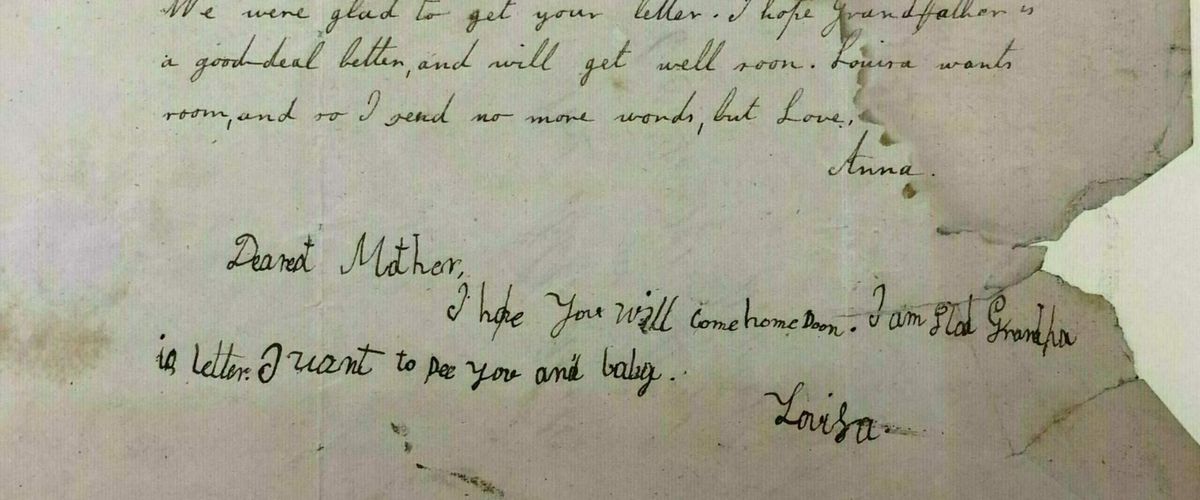 We were glad to get your letter. I hope Grandfather is
a good deal better, and will get well soon. Louisa wants
room, and so I send no more words, but Love.
Anna.
Dearest Mother,
I hope you will come home soon. I am glad Grandpa
is better. I want to see you and baby.
Louisa.